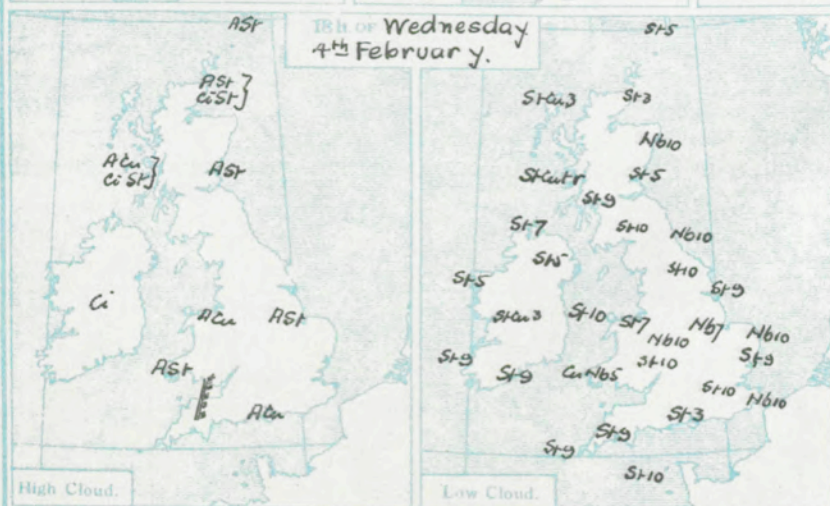 18h. on Wednesday
4th February.
ASt
ASt }
CiSt }
ACu }
Ci St }
ASt
Ci
ACu
ASt
ASt
ACu
High Cloud.
St5
StCu3
St3
Nb10
StCutr
St5
St9
St7
St10
Nb10
St5
St10
St5
St9
StCu3
St10
St7
Nb7
Nb10
Nb10
St9
St9
St9
CuNb5
St10
St10
Nb10
St3
St9
St9
St10
Low Cloud.